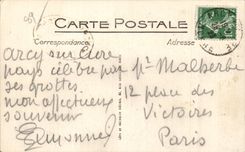 CARTE POSTALE
Correspondance
Adresse
Arcy sur Cure
pays célèbre par
ses grottes
mon affectueux
souvenir
Malherbe
12 place des
Victoires
Paris